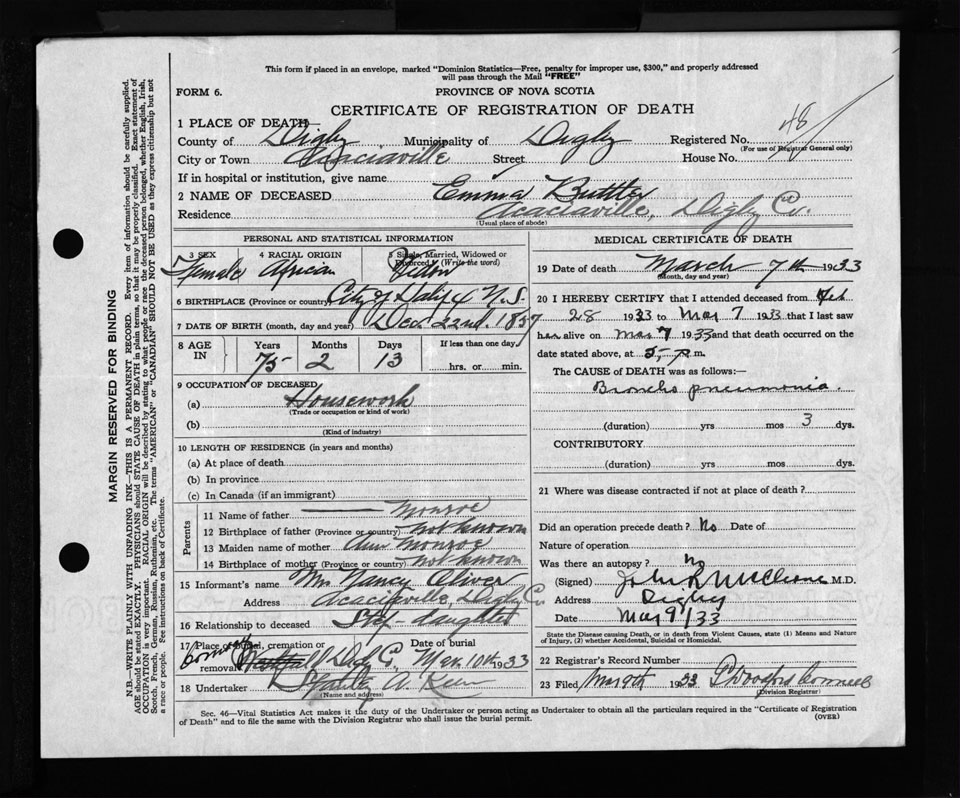 This form if placed in an envelope, marked "Dominion Statistics—Free, penalty for improper use, $300," and properly addressed
will pass through the Mail "FREE"
FORM 6.
PROVINCE OF NOVA SCOTIA
CERTIFICATE OF REGISTRATION OF DEATH
48
1 PLACE OF DEATH—
County of Digby Municipality of Digby Registered No.
(For use of Registrar General only)
City or Town Acaciaville Street House No.
If in hospital or institution, give name
2 NAME OF DECEASED Emma Buttler
Residence Acaciaville, Digby Co.
(Usual place of abode)
PERSONAL AND STATISTICAL INFORMATION
3 SEX 4 RACIAL ORIGIN 5 Single, Married, Widowed or
Divorced (Write the word)
Female African Widow
6 BIRTHPLACE (Province or country) City of Halifax N.S.
7 DATE OF BIRTH (month, day and year) Dec 22nd. 1857
8 AGE IN Years Months Days If less than one day
75 2 13 hrs. or min.
9 OCCUPATION OF DECEASED
(a) Housework
(Trade or occupation or kind of work)
(b)
(Kind of industry)
10 LENGTH OF RESIDENCE (in years and months)
(a) At place of death
(b) In province
(c) In Canada (if an immigrant)
Parents
11 Name of father Monroe
12 Birthplace of father (Province or country) not known
13 Maiden name of mother Ann Monroe
14 Birthplace of mother (Province or country) not known
15 Informant's name Mrs Nancy Oliver
Address Acaciaville, Digby Co
16 Relationship to deceased Step-daughter
17 Place of burial, cremation or removal Digby Co. Date of burial Mar. 10th 1933
18 Undertaker A.
(Name and address)
MEDICAL CERTIFICATE OF DEATH
19 Date of death March 7th 1933
(Month, day and year)
20 I HEREBY CERTIFY that I attended deceased from Feb
28 1933 to Mar 7 1933 that I last saw
her alive on Mar 7 1933 and that death occurred on the
date stated above, at 5, p m.
The CAUSE OF DEATH was as follows:—
Broncho pneumonia.
(duration) yrs mos 3 dys.
CONTRIBUTORY
(duration) yrs mos dys.
21 Where was disease contracted if not at place of death?
Did an operation precede death? No Date of
Nature of operation
Was there an autopsy? No
(Signed) John R McCleave M.D.
Address Digby
Date Mar 9/33
State the Disease causing Death, or in death from Violent Causes, state (1) Means and Nature
of Injury, (2) whether Accidental, Suicidal or Homicidal.
22 Registrar's Record Number
23 Filed Mar 9th 1933
(Division Registrar)
Sec. 46—Vital Statistics Act makes it the duty of the Undertaker or person acting as Undertaker to obtain all the particulars required in the "Certificate of Registration
of Death" and to file the same with the Division Registrar who shall issue the burial permit.
(OVER)
MARGIN RESERVED FOR BINDING
N.B.—WRITE PLAINLY WITH UNFADING INK—THIS IS A PERMANENT RECORD. Every item of information should be carefully supplied.
AGE should be stated EXACTLY. PHYSICIANS should STATE CAUSE OF DEATH in plain terms, so that it may be properly classified. Exact statement of
OCCUPATION is very important. RACIAL ORIGIN will be described by stating to what people or race the deceased person belonged, whether English, Irish,
Scotch, French, German, Russian, Ruthenian, etc. The terms "AMERICAN" or "CANADIAN" SHOULD NOT BE USED as they express citizenship but not
a race or people. Fee instructions on back of Certificate.